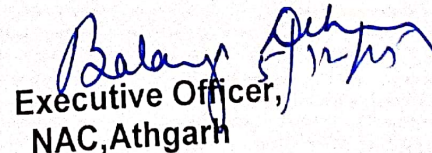 5/12/25
Executive Officer,
NAC, Athgarh